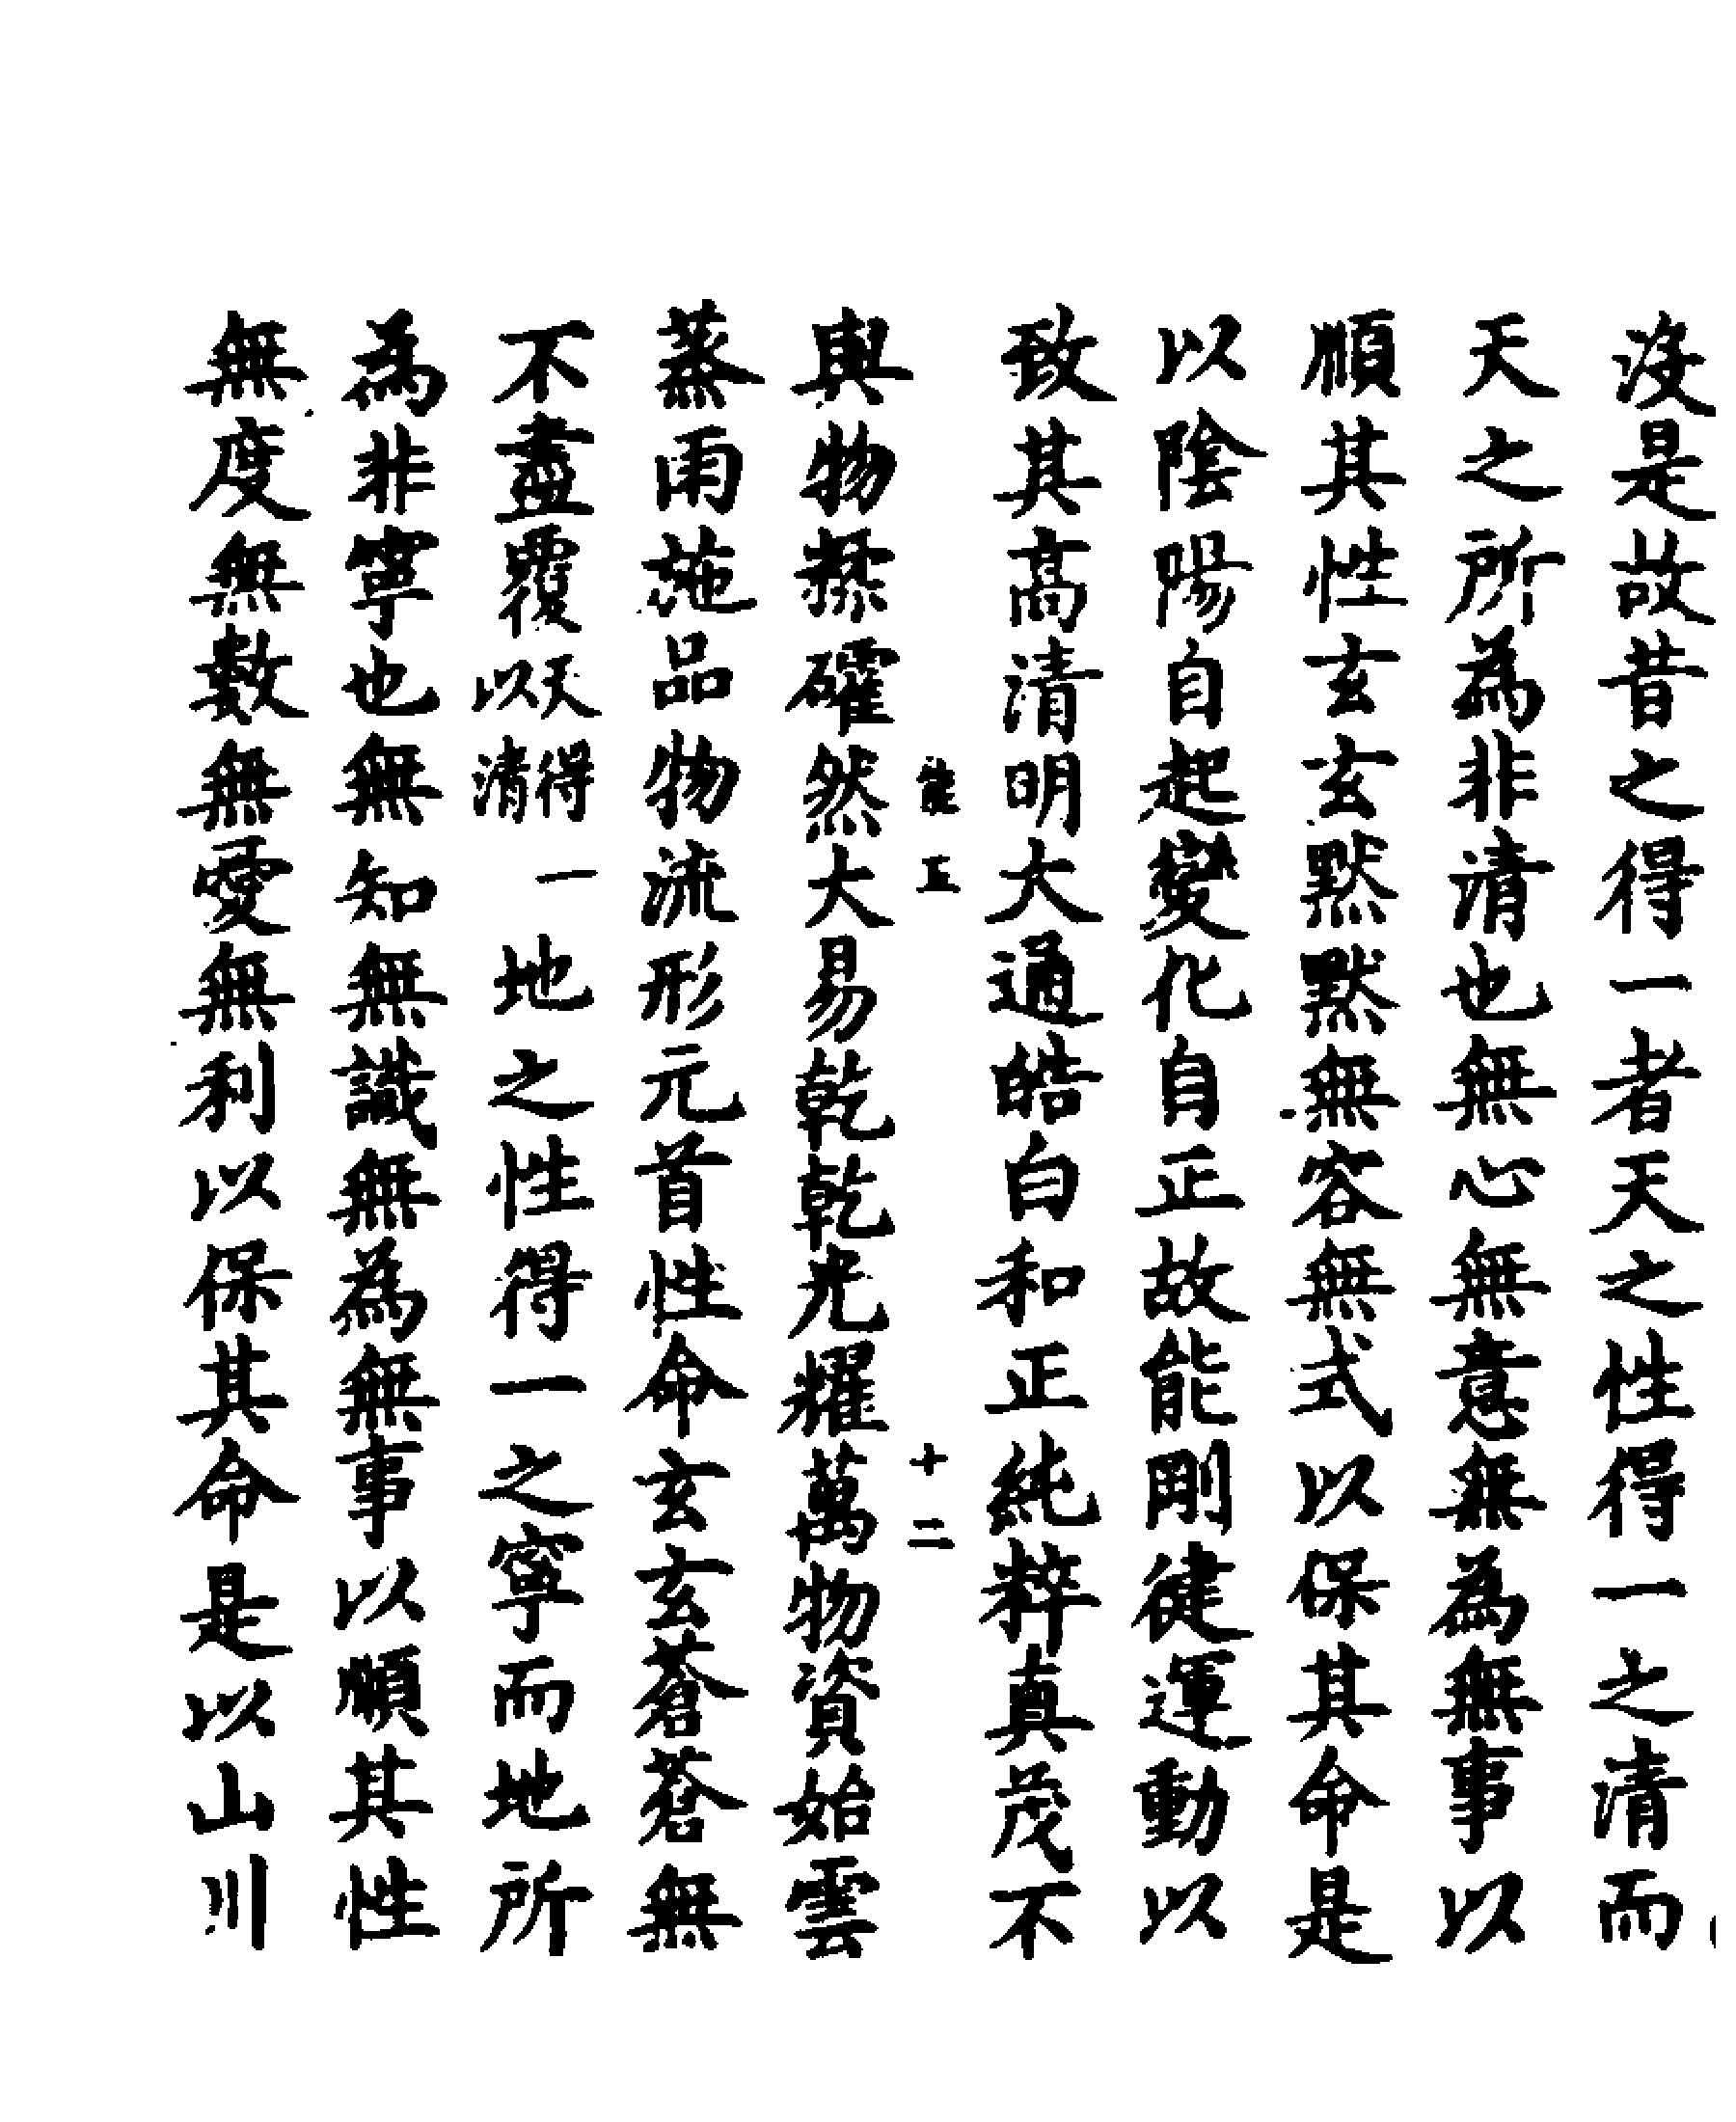 沒是故昔之得一者天之性得一之清而
天之所為非清也無心無意無為無事以
順其性玄玄默默無容無式以保其命是
以陰陽自起變化自正故能剛健運動以
致其高清明大通皓白和正純粹真茂不
能五 十二
與物糅確然大易乾乾光耀萬物資始雲
蒸雨施品物流形元首性命玄玄蒼蒼無
不盡覆天得一以清地之性得一之寧而地所
為非寧也無知無識無為無事以順其性
無度無數無愛無利以保其命是以山川